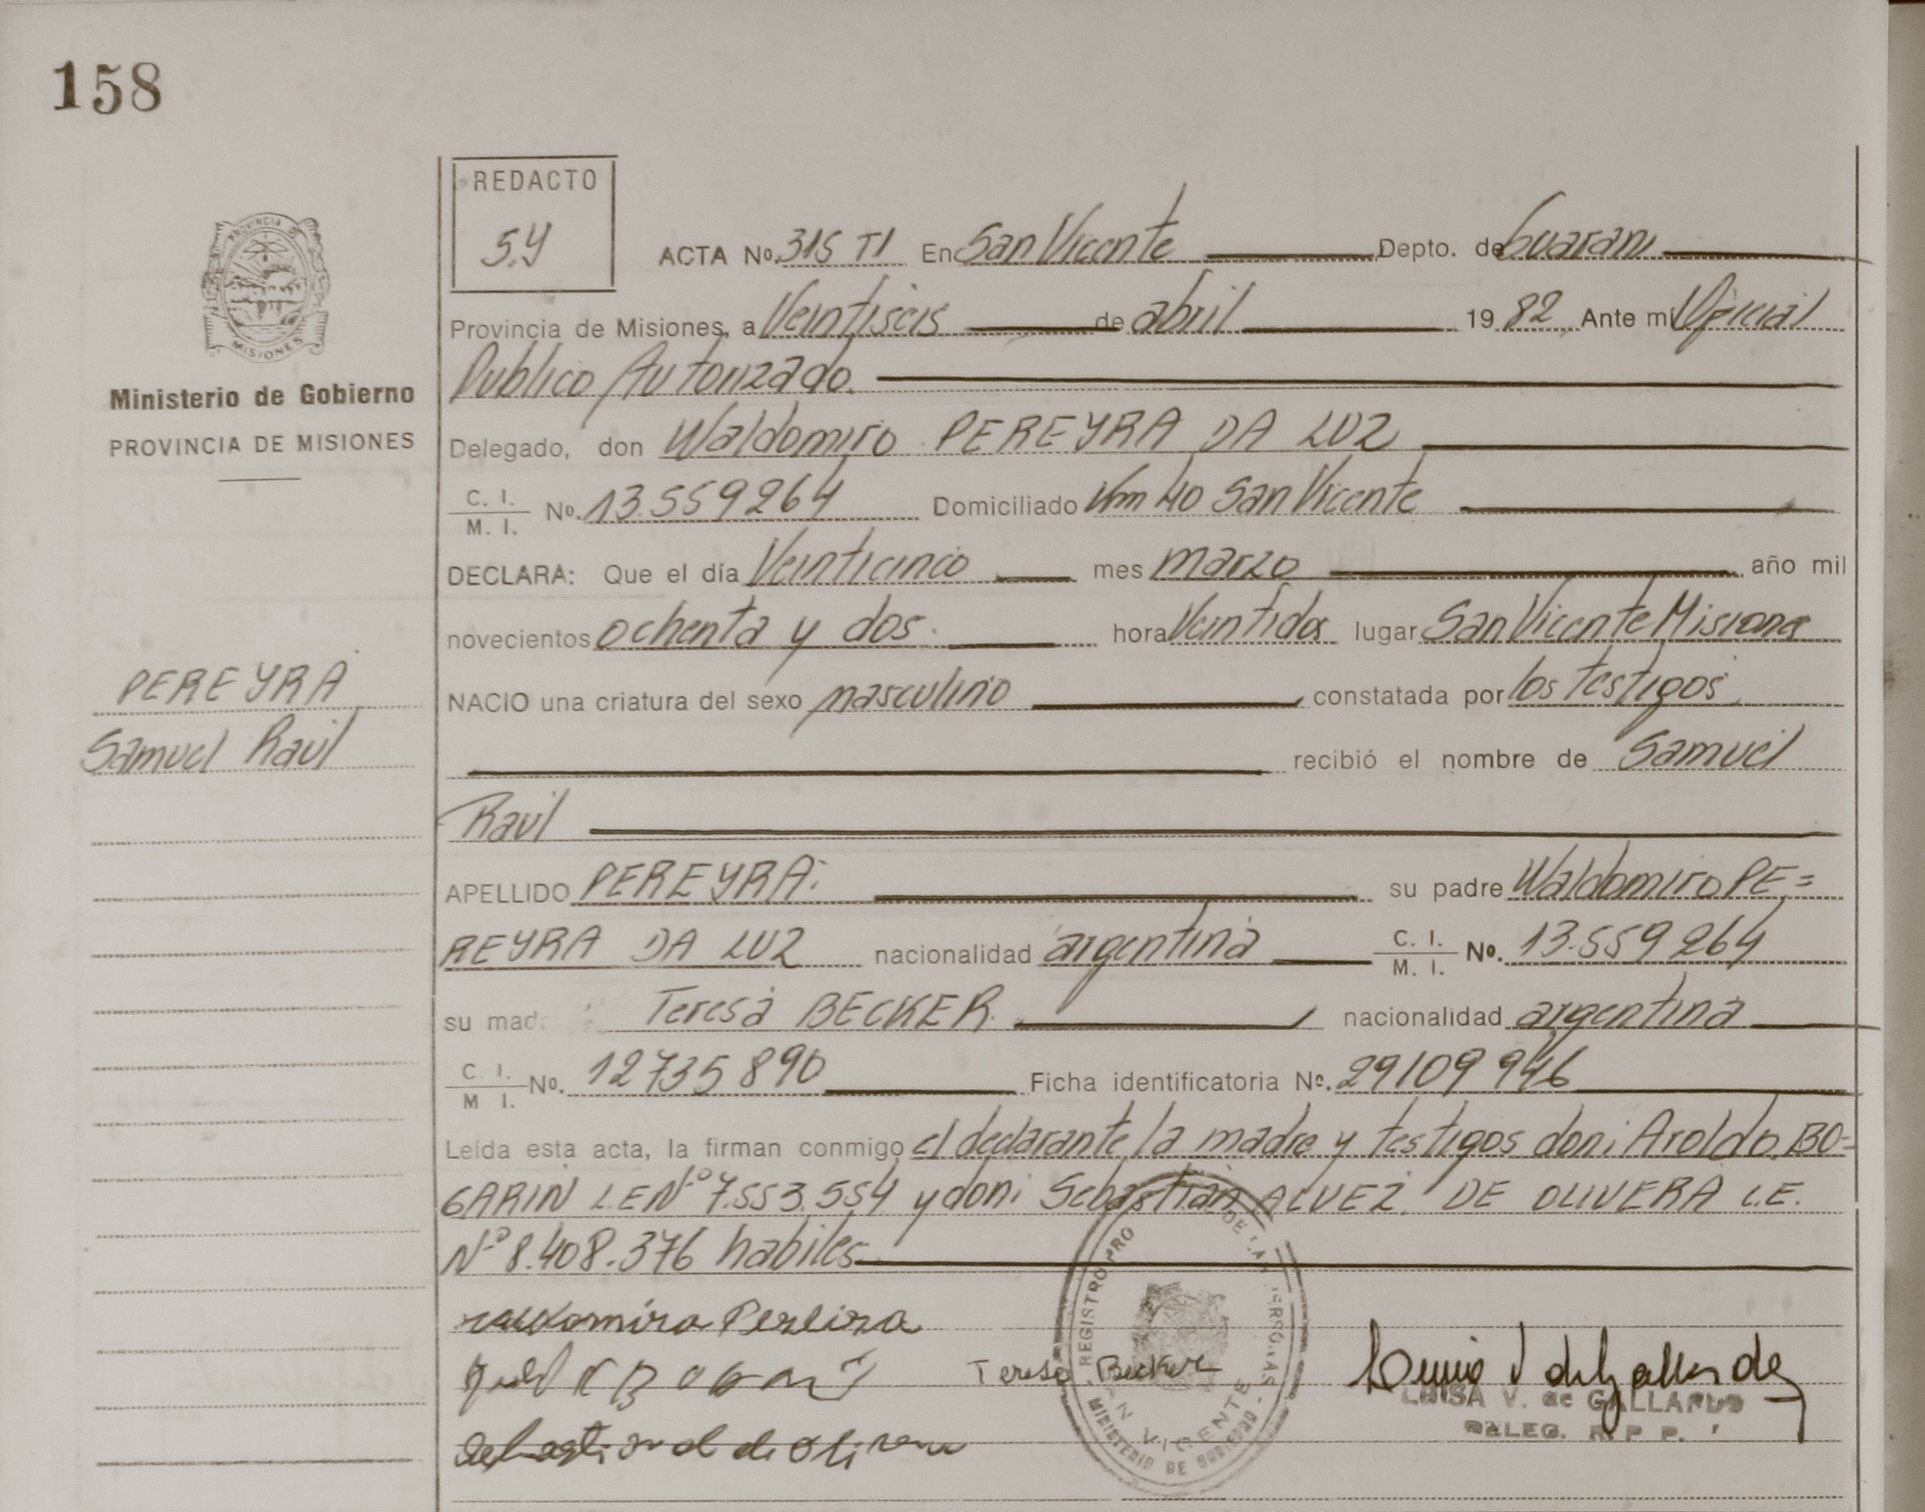 158
REDACTO
5.Y
ACTA No. 315 TI En San Vicente Depto. de Guarani
Provincia de Misiones, a Veintiseis de abril 19 82 Ante mi Oficial
Publico Autorizado.
PROVINCIA DE
MISIONES
Ministerio de Gobierno
PROVINCIA DE MISIONES
Delegado, don Waldomiro PEREYRA DA LUZ
C. I.
M. I. No. 13.559264 Domiciliado Km 40 San Vicente
DECLARA: Que el día Veinticinco mes marzo año mil
novecientos ochenta y dos. hora Veintidos lugar San Vicente Misiones
PEREYRA
Samuel Raul
NACIO una criatura del sexo masculino constatada por los testigos
recibió el nombre de Samuel
Raul
APELLIDO PEREYRA. su padre Waldomiro PE=
REYRA DA LUZ nacionalidad argentina C. I. M. I. No. 13.559264
su mad Teresa BECKER nacionalidad argentina
C. I. M I. No. 12735890 Ficha identificatoria No. 29109946
Leída esta acta, la firman conmigo el declarante, la madre y testigos don: Aroldo BO=
GARIN L.E.Nº 7.553.554 y don: Sebastian ALVEZ DE OLIVERA L.E.
Nº 8.408.376 habiles
REGISTRO PRO DE LAS PERSONAS
SAN VICENTE
MINISTERIO DE GOBIERNO
Teresa Becker
LUISA V. de GALLARDO
DELEG. R. P. P.